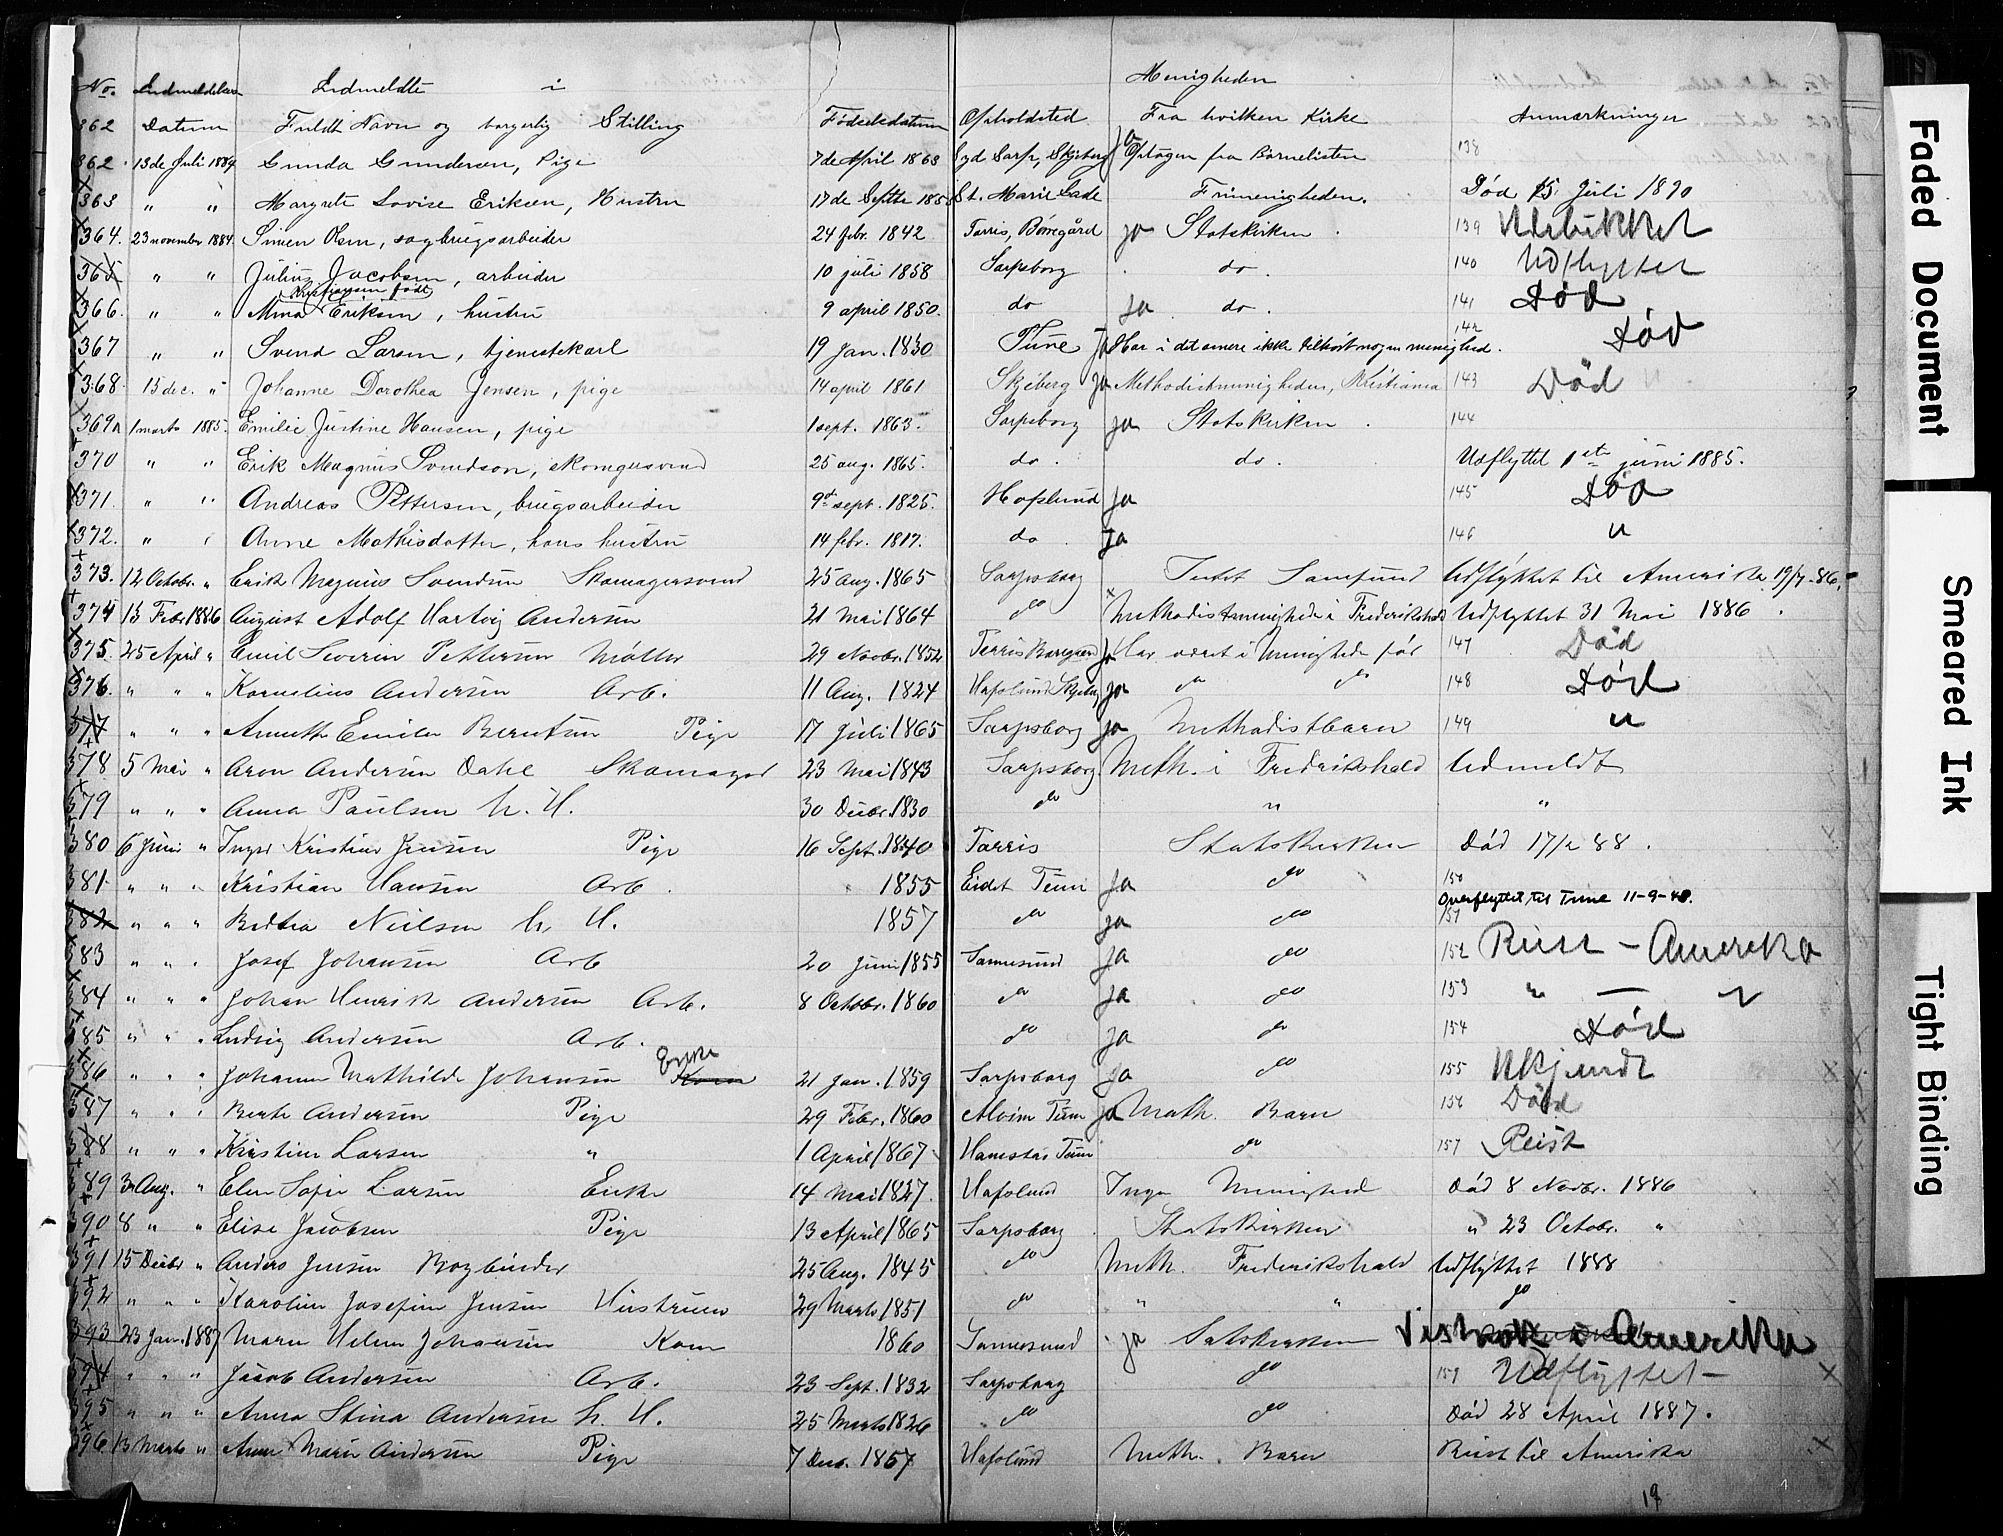 No. Indmeldelsen Indmeldte i Menigheden
362 Datum Fuldt Navn og borgerlig Stilling Fødselsdatum Opholdsted Fra hvilken Kirke Anmærkninger
362 13de Juli 1884 Gunda Gundersen, Pige 7de April 1868 Syd Sarp, Skjeberg Ja Optagen fra Børnelisten 138
363 " " Margrete Lovise Eriksen, Hustru 17de Septbr 185 St. Marie Gade Frimenigheden. Død 15 Juli 1890
364. 23 november 1884. Simen Olsen, sagbrugsarbeider 24 febr. 1842 Tarris, Borregård ja Statskirken. 139 Udslukket
365 " " Julius Jacobsen, arbeider 10 juli 1858 Sarpsborg do. 140 Udflyttet
Kristiansen født
366. " " Mina Eriksen, hustru 9 april 1850. do Ja do. 141 Død
367 " " Svend Larsen, tjenestekarl 19 Jan. 1830 Tune Ja Har i det senere ikke tilhørt nogen menighed. 142 Død
368. 15 dec. " Johanne Dorothea Jensen, pige 14 april 1861 Skjeberg Ja Methodistmenigheden, Kristiania 143 Død
369 1 marts 1885. Emilie Justine Hansen, pige 1 sept. 1863. Sarpsborg ja Statskirken. 144
370 " " Erik Magnus Svendson, skomagersvend 25 aug. 1865. do. do. Udflyttet 1ste juni 1885.
371. " " Andreas Pettersen, brugsarbeider 9de sept. 1825. Hafslund Ja 145 Død
372. " " Anne Mathisdatter, hans hustru 14 febr. 1817. do. Ja 146 "
373. 12 Octobr. " Erik Magnus Svendsen Skomagersvend 25 Aug. 1865 Sarpsborg Intet Samfund Udflyttet til Amerika 19/7-86.
374 15 Febr 1886 August Adolf Hartvig Andersen 21 Mai 1864 do Methodistmenighede i Frederikshald Udflyttet 31 Mai 1886.
375. 25 April " Emil Severin Pettersen Møller 29 Novbr. 1852 Tarris Borregaard Ja Har været i Menighede før 147 Død
376. " " " Kornelius Andersen Arb. 11 Aug. 1824 Hafslund Skjeberg Ja do do 148 Død
377 " " " Annette Emilie Berntsen Pige 17 Juli 1865 Sarpsborg Ja Methodistbarn 149 "
378 5 Mai " Aron Andersen Dahl Skomager 23 Mai 1843 Sarpsborg Meth. i Fredrikshald Udmeldt
379 " " " Anna Paulsen h. H. 30 Decbr. 1830 do " "
380 6 Juni " Inger Kristine Jensen Pige 16 Sept. 1840 Tarris Statskirken Død 17/2 88.
381. " " " Kristian Hansen Arb. 1855 Eidet Tune Ja do 150
Overflyttet til Tune 11-9-40.
382 " " " Nielsen h. H. 1857 do ja do 151
383 " " " Josef Johansen Arb 20 Juni 1855 Sannesund Ja do 152 Reist - Amerika
384 " " " Johan Henrik Andersen Arb. 8 Octobr. 1860 do Ja do 153 " — "
385 " " " Ludvig Andersen Arb. do Ja do 154 Død
Enke
386 " " " Johanne Mathilde Johansen Kone 21 Jan. 1859 Sarpsborg Ja do 155 Ukjendt
387 " " " Berte Andersen Pige 29 Febr. 1860 Alvim Tune Ja Meth. Barn 156 Død
388 " " " Kristine Larsen " 1 April 1867 Tune do 157 Reist
389 3 Aug. " Elen Sofie Larsen Enke 14 Mai 1827. Hafslund Ingen Menighed Død 8 Novbr. 1886
390 8 " " Elise Jacobsen Pige 13 April 1865 Sarpsborg Statskirken " 23 Octobr. "
391 15 Decbr " Anders Jensen Bogbinder 25 Aug. 1845 do Meth. Frederikshald Udflyttet 1888
392 " " " Karoline Josefine Jensen Hustruen 29 Marts 1851 do " " do
393 23 Jan. 1887 Maren Helene Johansen Kone 1860 Sannesund Ja Satskirken Vistnok i Amerika
394 " " " Jacob Andersen Arb. 23 Sept. 1832 Sarpsborg do 159 Udflyttet -
395 " " " Anna Stina Andersen h. H. 25 Marts 1826 do do Død 28 April 1887.
396. 13 Marts " Anne Marie Andersen Pige 7 Decbr. 1857 Hafslund Meth. Barn Reist til Amerika
19
Faded Document
Smeared Ink
Tight Binding